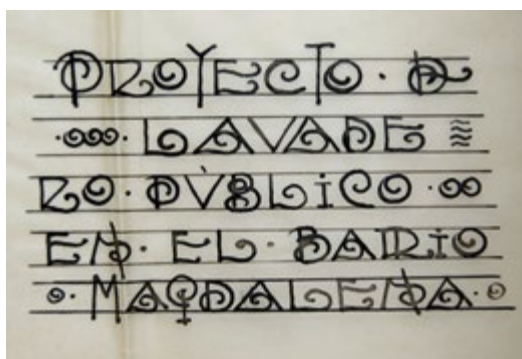 PROYECTO · DE
LAVADE
RO · PÚBLICO ·
EN · EL · BARRIO
· MAGDALENA ·